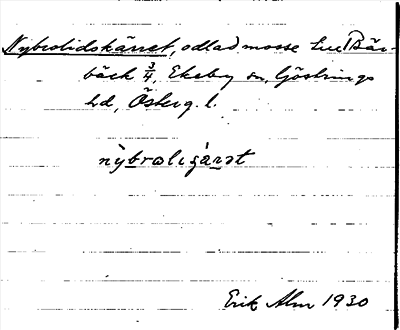 Nybrolidskärret, odlad mosse Bär-
bäck 3/4, Ekeby sn, Göstrings
hd, Österg. l.
nỳbrolisjä́rət
Erik Alm 1930